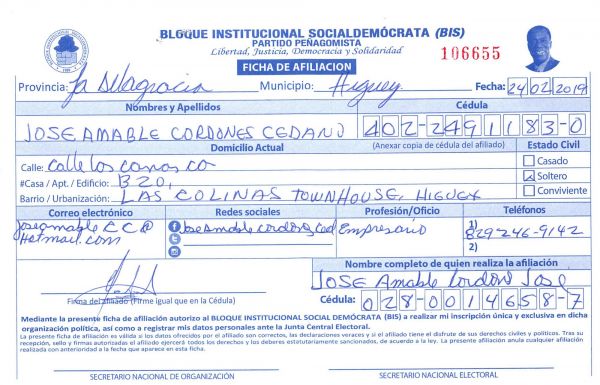 BLOQUE INSTITUCIONAL SOCIALDEMÓCRATA (BIS)
PARTIDO PEÑAGOMISTA
Libertad, Justicia, Democracia y Solidaridad
106655
FICHA DE AFILIACION
Provincia: la Altagracia Municipio: Higuey Fecha: 24/02/2019
Nombres y Apellidos Cédula
JOSE AMABLE CORDONES CEDANO 402-2491183-0
Domicilio Actual (Anexar copia de cédula del afiliado) Estado Civil
Calle: Calle los
#Casa / Apt. / Edificio: B 20,
Barrio / Urbanización: LAS COLINAS TOWNHOUSE, HIGUEY
Casado
Soltero
Conviviente
Correo electrónico Redes sociales Profesión/Oficio Teléfonos
Joseamable C C @
Hotmail.com
Jose Amable cordones Ced
Empresario
1) 829 246-9142
2)
Nombre completo de quien realiza la afiliación
JOSE Amable Cordon José
Cédula: 028-0014658-7
Firma del afiliado (Firme igual que en la Cédula)
Mediante la presente ficha de afiliación autorizo al BLOQUE INSTITUCIONAL SOCIAL DEMÓCRATA (BIS) a realizar mi inscripción única y exclusiva en dicha
organización política, así como a registrar mis datos personales ante la Junta Central Electoral.
La presente ficha de afiliación es válida si los datos ofrecidos por el afiliado son correctos, las declaraciones veraces y si el afiliado tiene el disfrute de sus derechos civiles y políticos. Tras su
recepción, sello y firmas autorizadas el afiliado ejercerá todos los derechos y los deberes estatutariamente sancionados, de acuerdo a la ley. La presente afiliación anula cualquier afiliación
realizada con anterioridad a la fecha que aparece en esta ficha.
SECRETARIO NACIONAL DE ORGANIZACIÓN SECRETARIO NACIONAL ELECTORAL